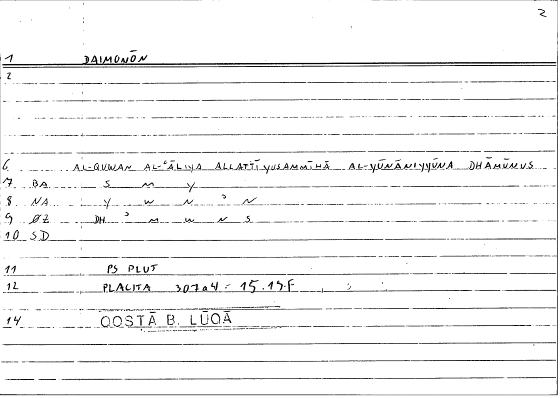 2
1 DAIMONŌN
2
6. AL-QUWAN AL-ʿĀLIYA ALLATTĪ YUSAMMĪHĀ AL-YŪNĀNIYYŪNA DHĀMŪNUS
7 BA S M Y
8 NA Y W N ʾ N
9 ØZ DH ʾ M W N S
10 SD
11 PS PLUT
12 PLACITA 307a4 = 15.15F
14 QOSTĀ B. LŪQĀ